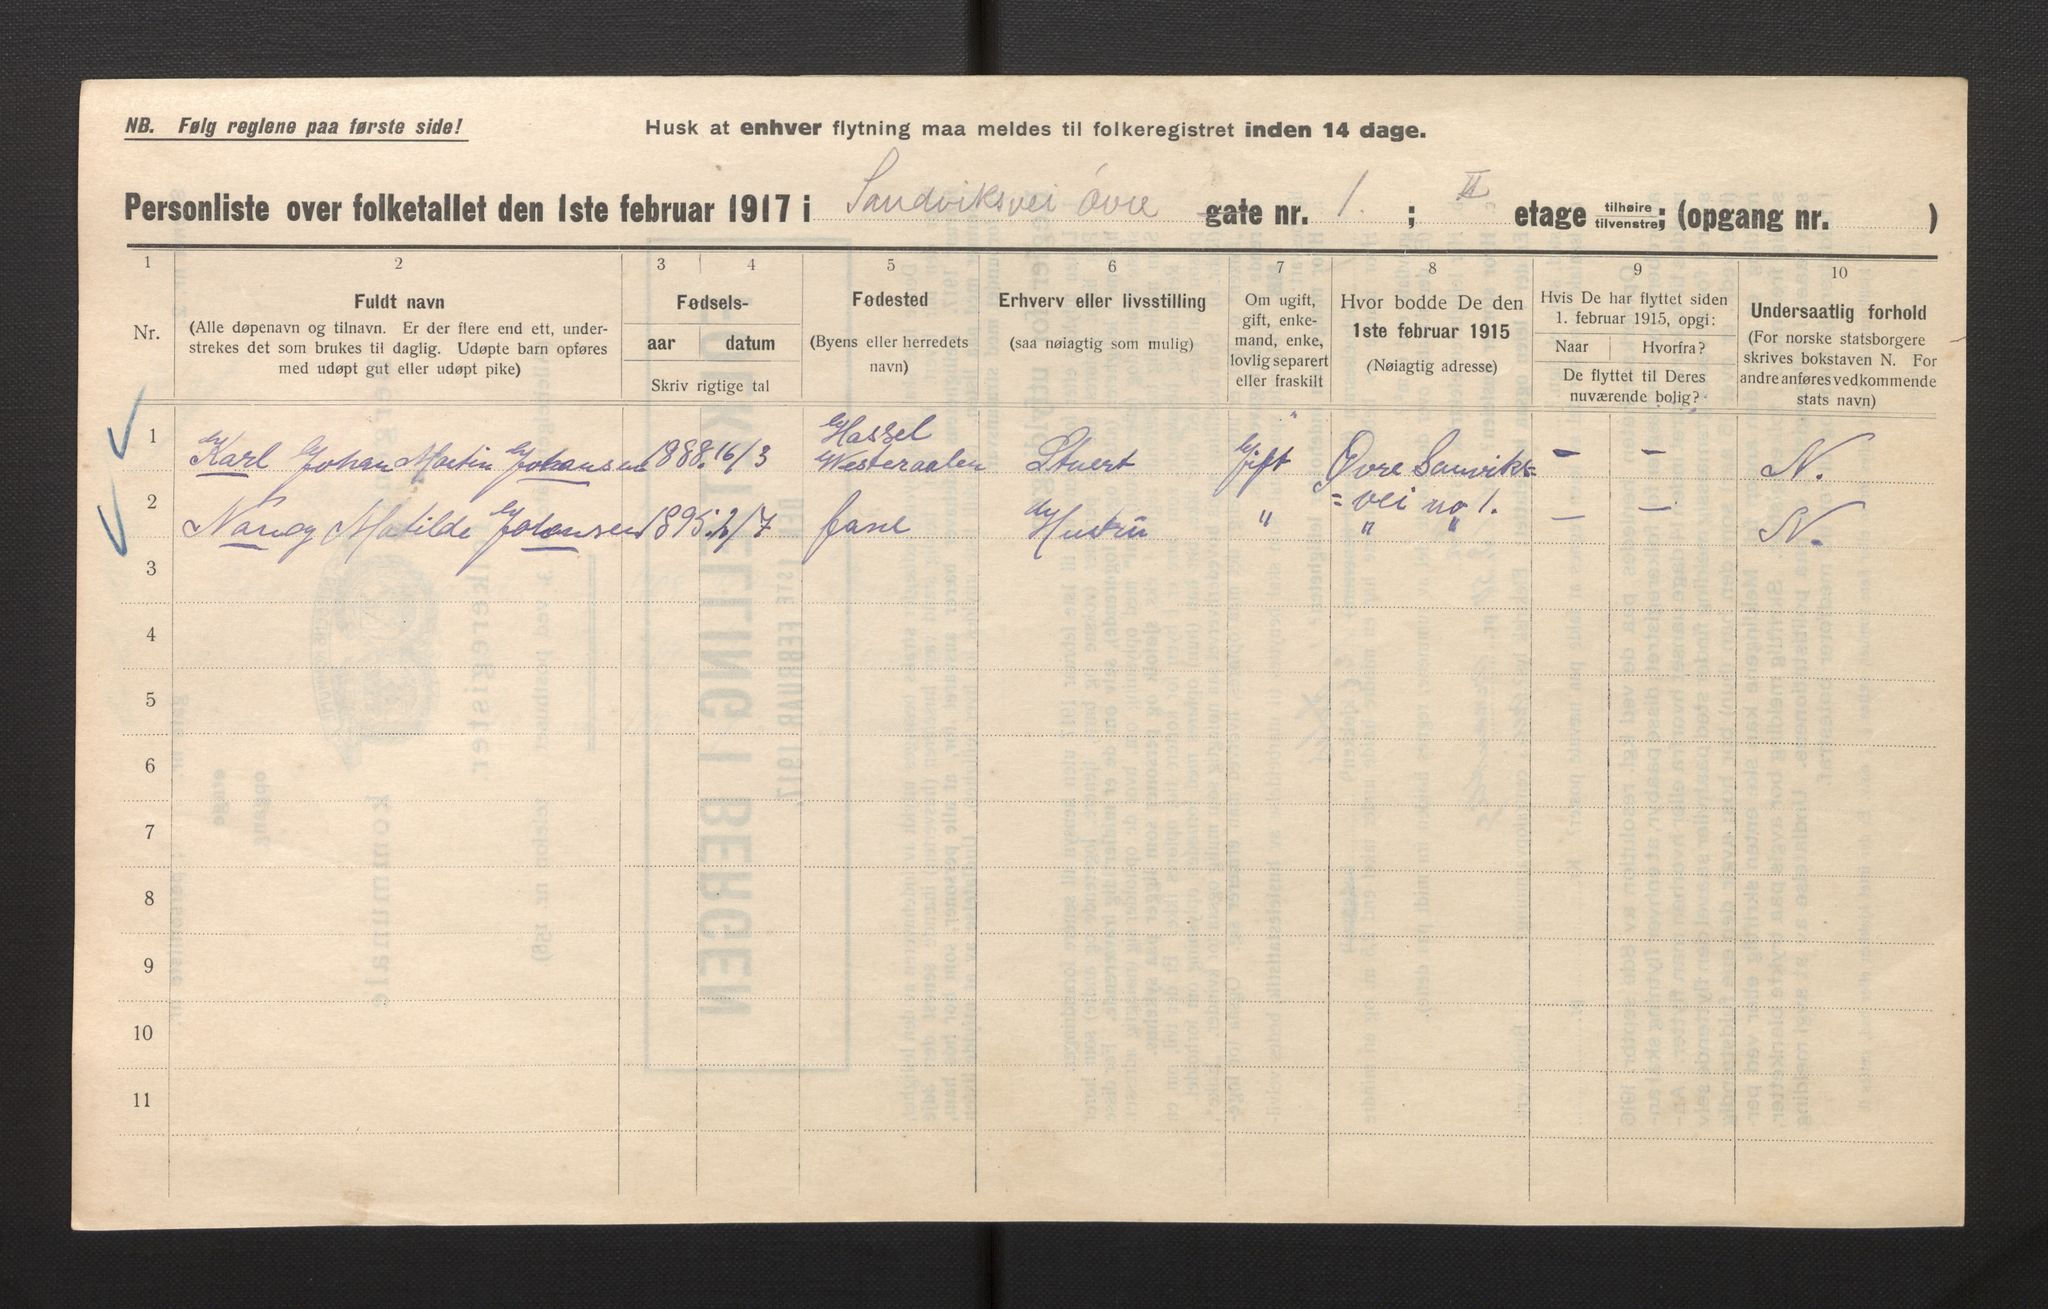 NB. Følg reglene paa første side!
Husk at enhver flytning maa meldes til folkeregistret inden 14 dage.
Personliste over folketallet den 1ste februar 1917 i Sandviksvei Øvre gate nr. 1. ; II. etage tilhøire tilvenstre; (opgang nr. )
1 2 3 4 5 6 7 8 9 10
Nr.
Fuldt navn
(Alle døpenavn og tilnavn. Er der flere end ett, under-
strekes det som brukes til daglig. Udøpte barn opføres
med udøpt gut eller udøpt pike)
Fødsels-
aar datum
Skriv rigtige tal
Fødested
(Byens eller herredets
navn)
Erhverv eller livsstilling
(saa nøiagtig som mulig)
Om ugift,
gift, enke-
mand, enke,
lovlig separert
eller fraskilt
Hvor bodde De den
1ste februar 1915
(Nøiagtig adresse)
Hvis De har flyttet siden
1. februar 1915, opgi:
Naar Hvorfra?
De flyttet til Deres
nuværende bolig?
Undersaatlig forhold
(For norske statsborgere
skrives bokstaven N. For
andre anføres vedkommende
stats navn)
1 Hassel
Karl Johan Martin Johansen 1888. 16/3 Westeraalen Stuert Gift Øvre Sanviks= – – N.
2 = vei no 1.
Nancy Matilde Johansen 1895. /7 fane Hustru " " " – – N.
3
4
5
6
7
8
9
10
11